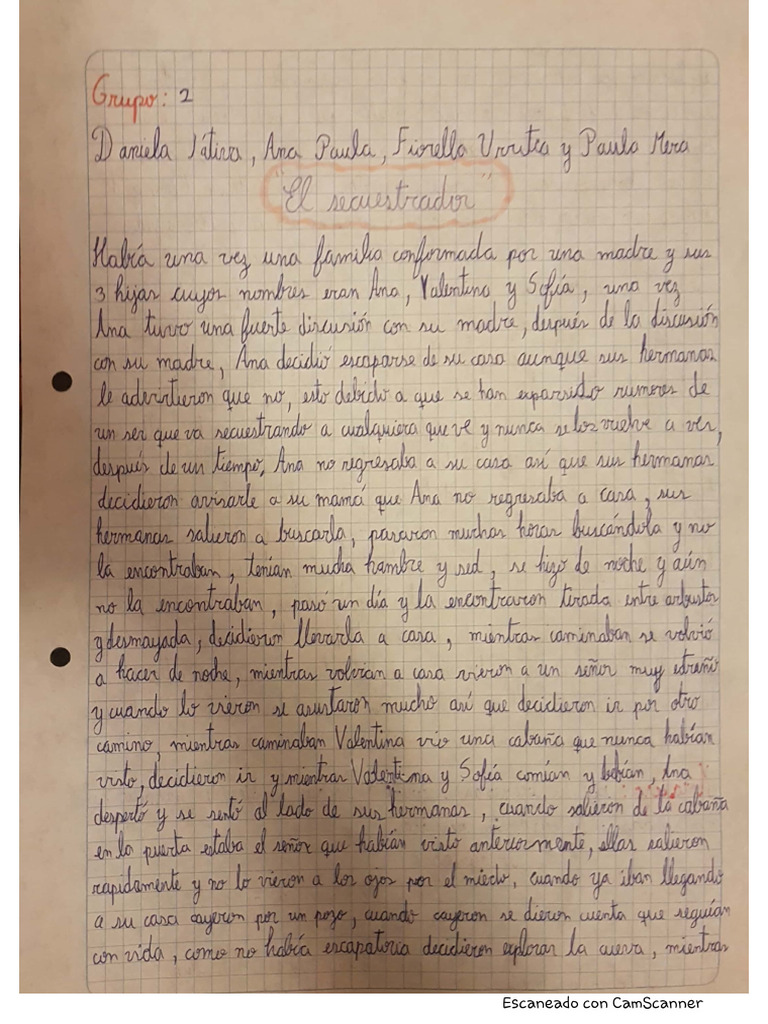 Grupo: 2
Daniela Játiva, Ana Paula, Fiorella Urrutia y Paula Mera
"El secuestrador"
Había una vez una familia conformada por una madre y sus
3 hijas cuyos nombres eran Ana, Valentina y Sofía, una vez
Ana tuvo una fuerte discusión con su madre, después de la discusión
con su madre, Ana decidió escaparse de su casa aunque sus hermanas
le advirtieron que no, esto debido a que se han esparsido rumores de
un ser que va secuestrando a cualquiera que ve y nunca se los vuelve a ver,
después de un tiempo, Ana no regresaba a su casa así que sus hermanas
decidieron avisarle a su mamá que Ana no regresaba a casa, sus
hermanas salieron a buscarla, pasaron muchas horas buscándola y no
la encontraban, tenían mucha hambre y sed, se hizo de noche y aún
no la encontraban, pasó un día y la encontraron tirada entre arbustos
y desmayada, decidieron llevarla a casa, mientras caminaban se volvió
a hacer de noche, mientras volvían a casa vieron a un señor muy extraño
y cuando lo vieron se asustaron mucho así que decidieron ir por otro
camino, mientras caminaban Valentina vio una cabaña que nunca habían
visto, decidieron ir y mientras Valentina y Sofía comían y bebían, Ana
despertó y se sentó al lado de sus hermanas, cuando salieron de la cabaña
en la puerta estaba el señor que habían visto anteriormente, ellas salieron
rapidamente y no lo vieron a los ojos por el miedo, cuando ya iban llegando
a su casa cayeron por un pozo, cuando cayeron se dieron cuenta que seguían
con vida, como no había escapatoria decidieron explorar la cueva, mientras
Escaneado con CamScanner